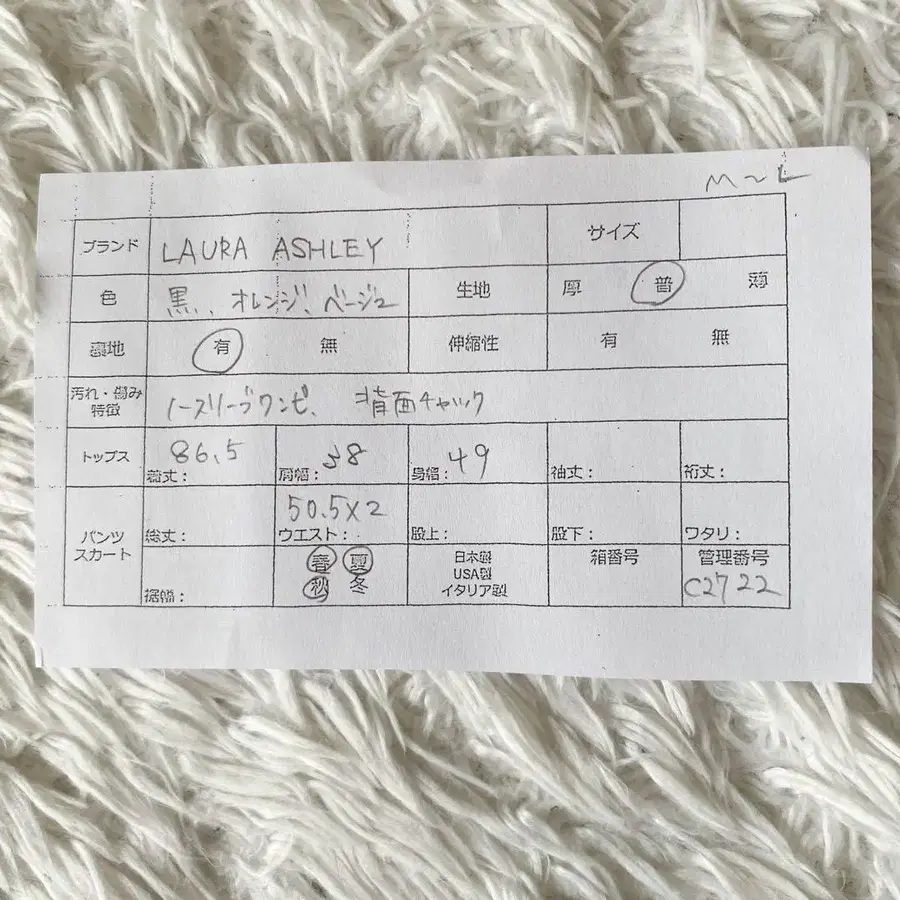 M～L
ブランド LAURA ASHLEY サイズ
色 黒、オレンジ、ベージュ 生地 厚 普 薄
裏地 有 無 伸縮性 有 無
汚れ・傷み
特徴 ノースリーブワンピ、 背面チャック
トップス 86.5 38 49
着丈： 肩幅： 身幅： 袖丈：裄丈：
パンツ
スカート 50.5×2
総丈： ウエスト： 股上： 股下： ワタリ：
春 夏
秋 冬
日本製
USA製
イタリア製
箱番号
管理番号
C2722
裾幅：